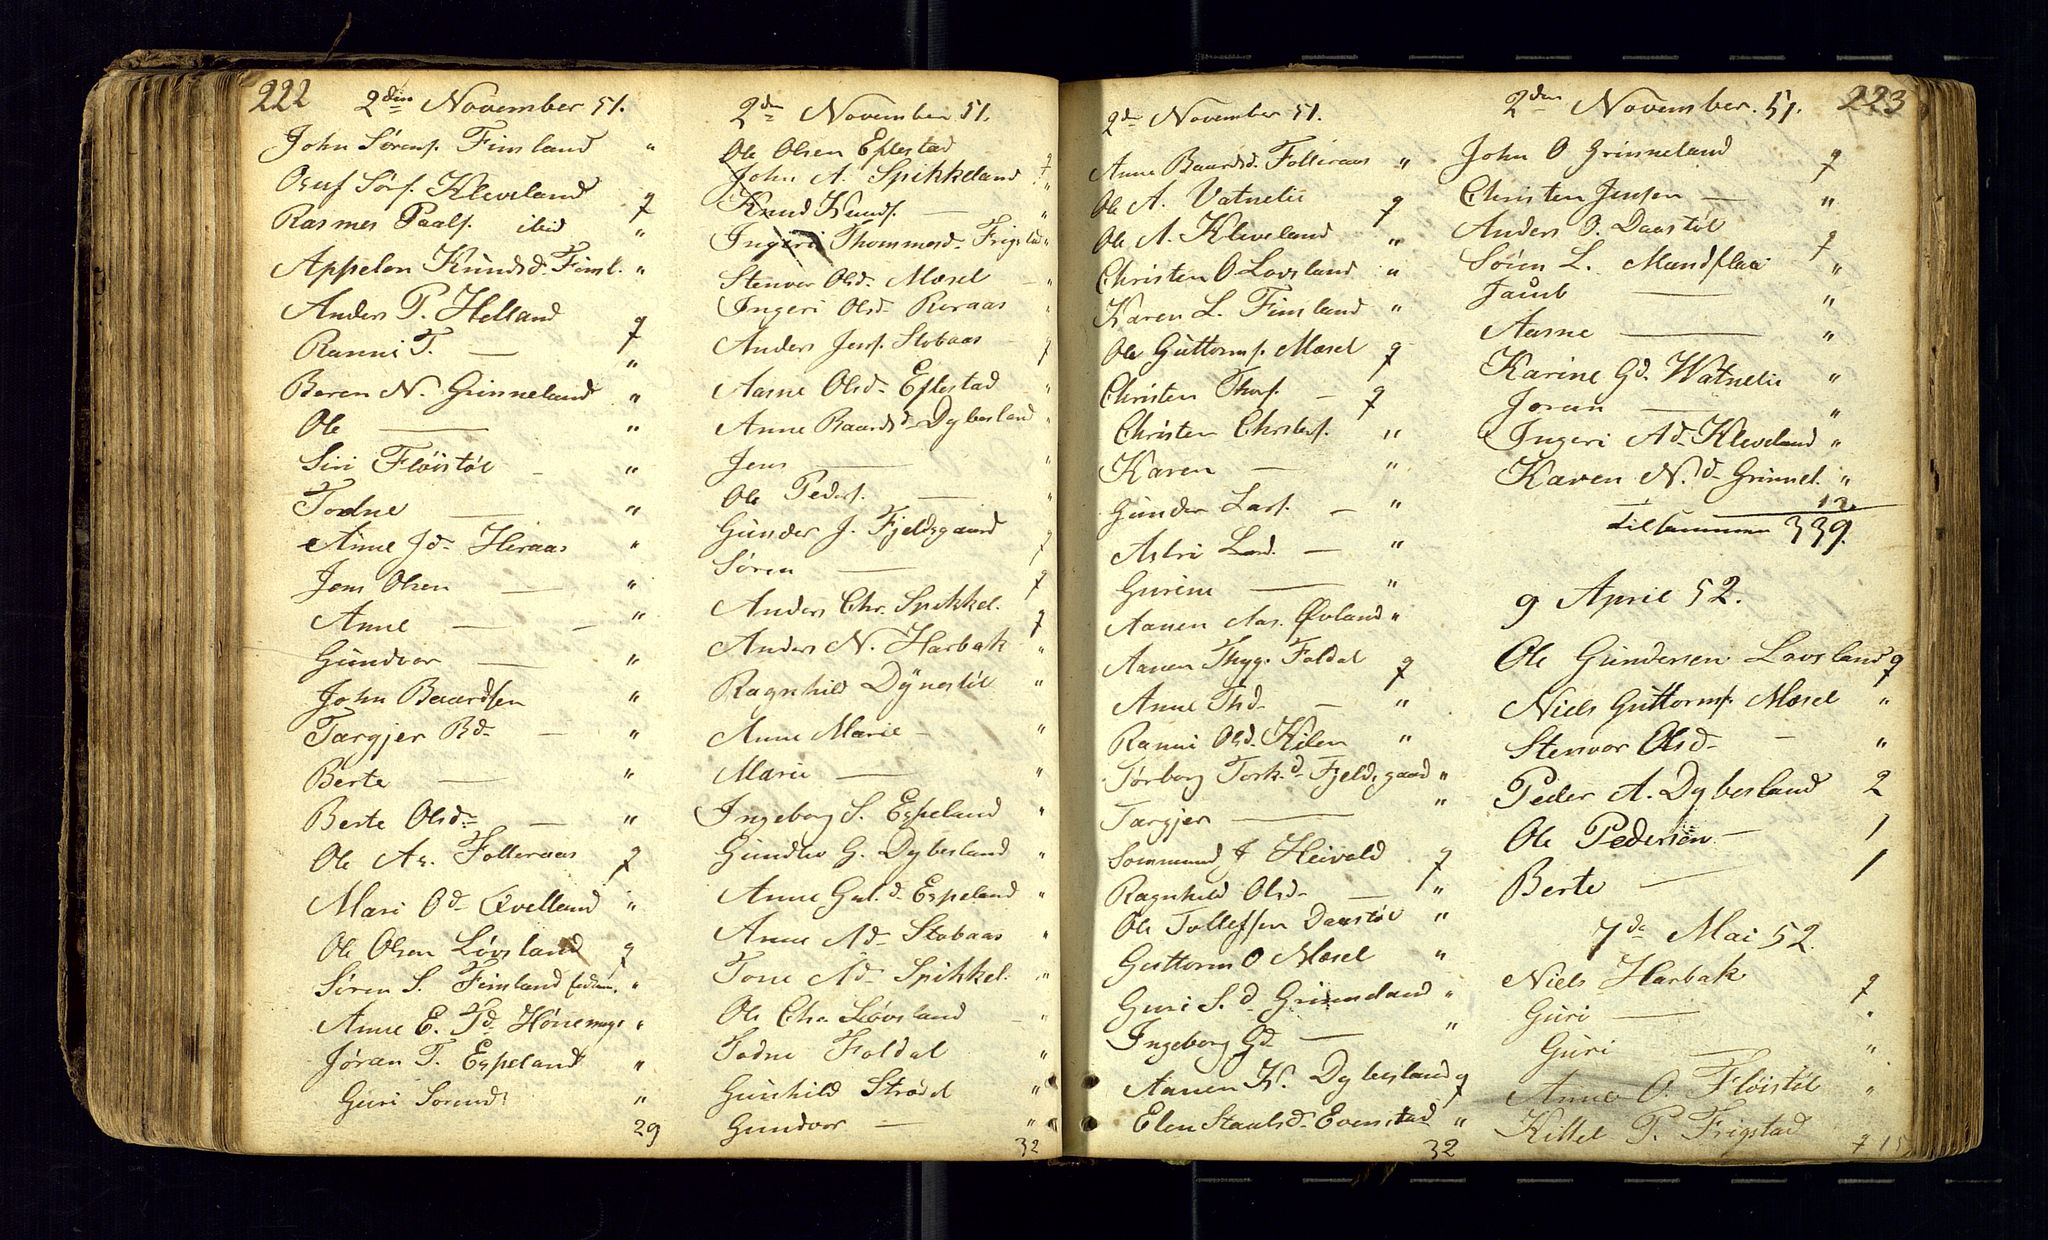 222
2den November 51.
John Sørens. Finland "
Oluf Sørs. Kleveland q
Rasmus Paals. ibid "
Appelon Knudsd. Finsl. "
Anders P. Helland q
Ranni T. — "
Beren N. Grinneland "
Ole — "
Siri Fløistøl - "
Todne — "
Anne Jd. Heraas "
Jens Olsen — "
Anne — - "
Gundvor — "
John Baardsen "
Targjer Bd. — "
Berte — "
Berte Olsd. — "
Ole As. Folleraas q
Mari Od. Øvelland "
Ole Olsen Løvsland q
Søren S. Finsland "
Anne E. Pd. Hønemyr "
Jøran T. Espeland "
Guri Sorensd. "
29
2den November 51.
Ole Olsen Eftestad q
John A. Spikkeland "
Knud Knuds. — "
Ingeri Thommesd. Frigstad "
Stenvor Olsd. Mæsel - "
Ingeri Olsd. Reraas "
Anders Jens. Stobaas - q
Aasne Olsd. Eftestad "
Anne Baardsd. Dybesland "
Jens — "
Ole Peders. — "
Gunder J. Fjeldsgaard q
Søren — q
Anders Chr. Spikkel. q
Anders N. Harbak "
Ragnhild Dynestøl "
Anne Marie - "
Marie — "
Ingeborg S. Espeland "
Gundlev G. Dybesland "
Anne Gul.d. Espeland "
Anne Ad. Stobaas "
Tone Ad. Spikkel. "
Ole Chr. Løvsland - "
Todne Foldal "
Gunhild Strødl "
Gundvor — "
32
2den November 51.
Anne Baardsd. Folleraas "
Ole A. Vatnelie q
Ole A. Kleveland "
Christen O. Lovsland "
Karen L. Finsland "
Ole Guttorms. Mæsel q
Christen Thors. - q
Christen Christens. "
Karen — "
Gunder Lars. - "
Astri Lard. — "
Gurine — "
Aanen Aas. Øvland "
Aanen Thyg. Foldal q
Anne Thd. - "
Ranni Olsd. Kilen "
Tørborg Tork.d. Fjeldsgaard "
Targjer — "
Sommund J Heivold q
Ragnhild Olsd. — "
Ole Tollefsen Daastøl "
Guttorm O Mæsel "
Guri S.d. Grinneland "
Ingeborg Gd. — "
Aanen K. Dybesland q
Elen Staalsd. Evenstad "
32
2den November. 51.
223
John O Grinneland q
Christen Jensen — "
Anders O. Daastøl q
Søren L. Mundflaa "
Jacob — "
Aasne — "
Karine Gd. Watnelie "
Joran — "
Ingeri Ad. Kleveland "
Karen N.d. Grinnel. "
12.
tilsammen 339.
9 April 52.
Ole Gundersen Lovsland q
Niels Guttorms. Mæsel "
Stenvor Olsd. - "
Peder A. Dybesland 2
Ole Pedersen - 1
Berte — 1
7de Mai 52.
Niels Harbak q
Guri — "
Guri — "
Anne O. Fløistøl "
Kittel P. Frigstad q 15